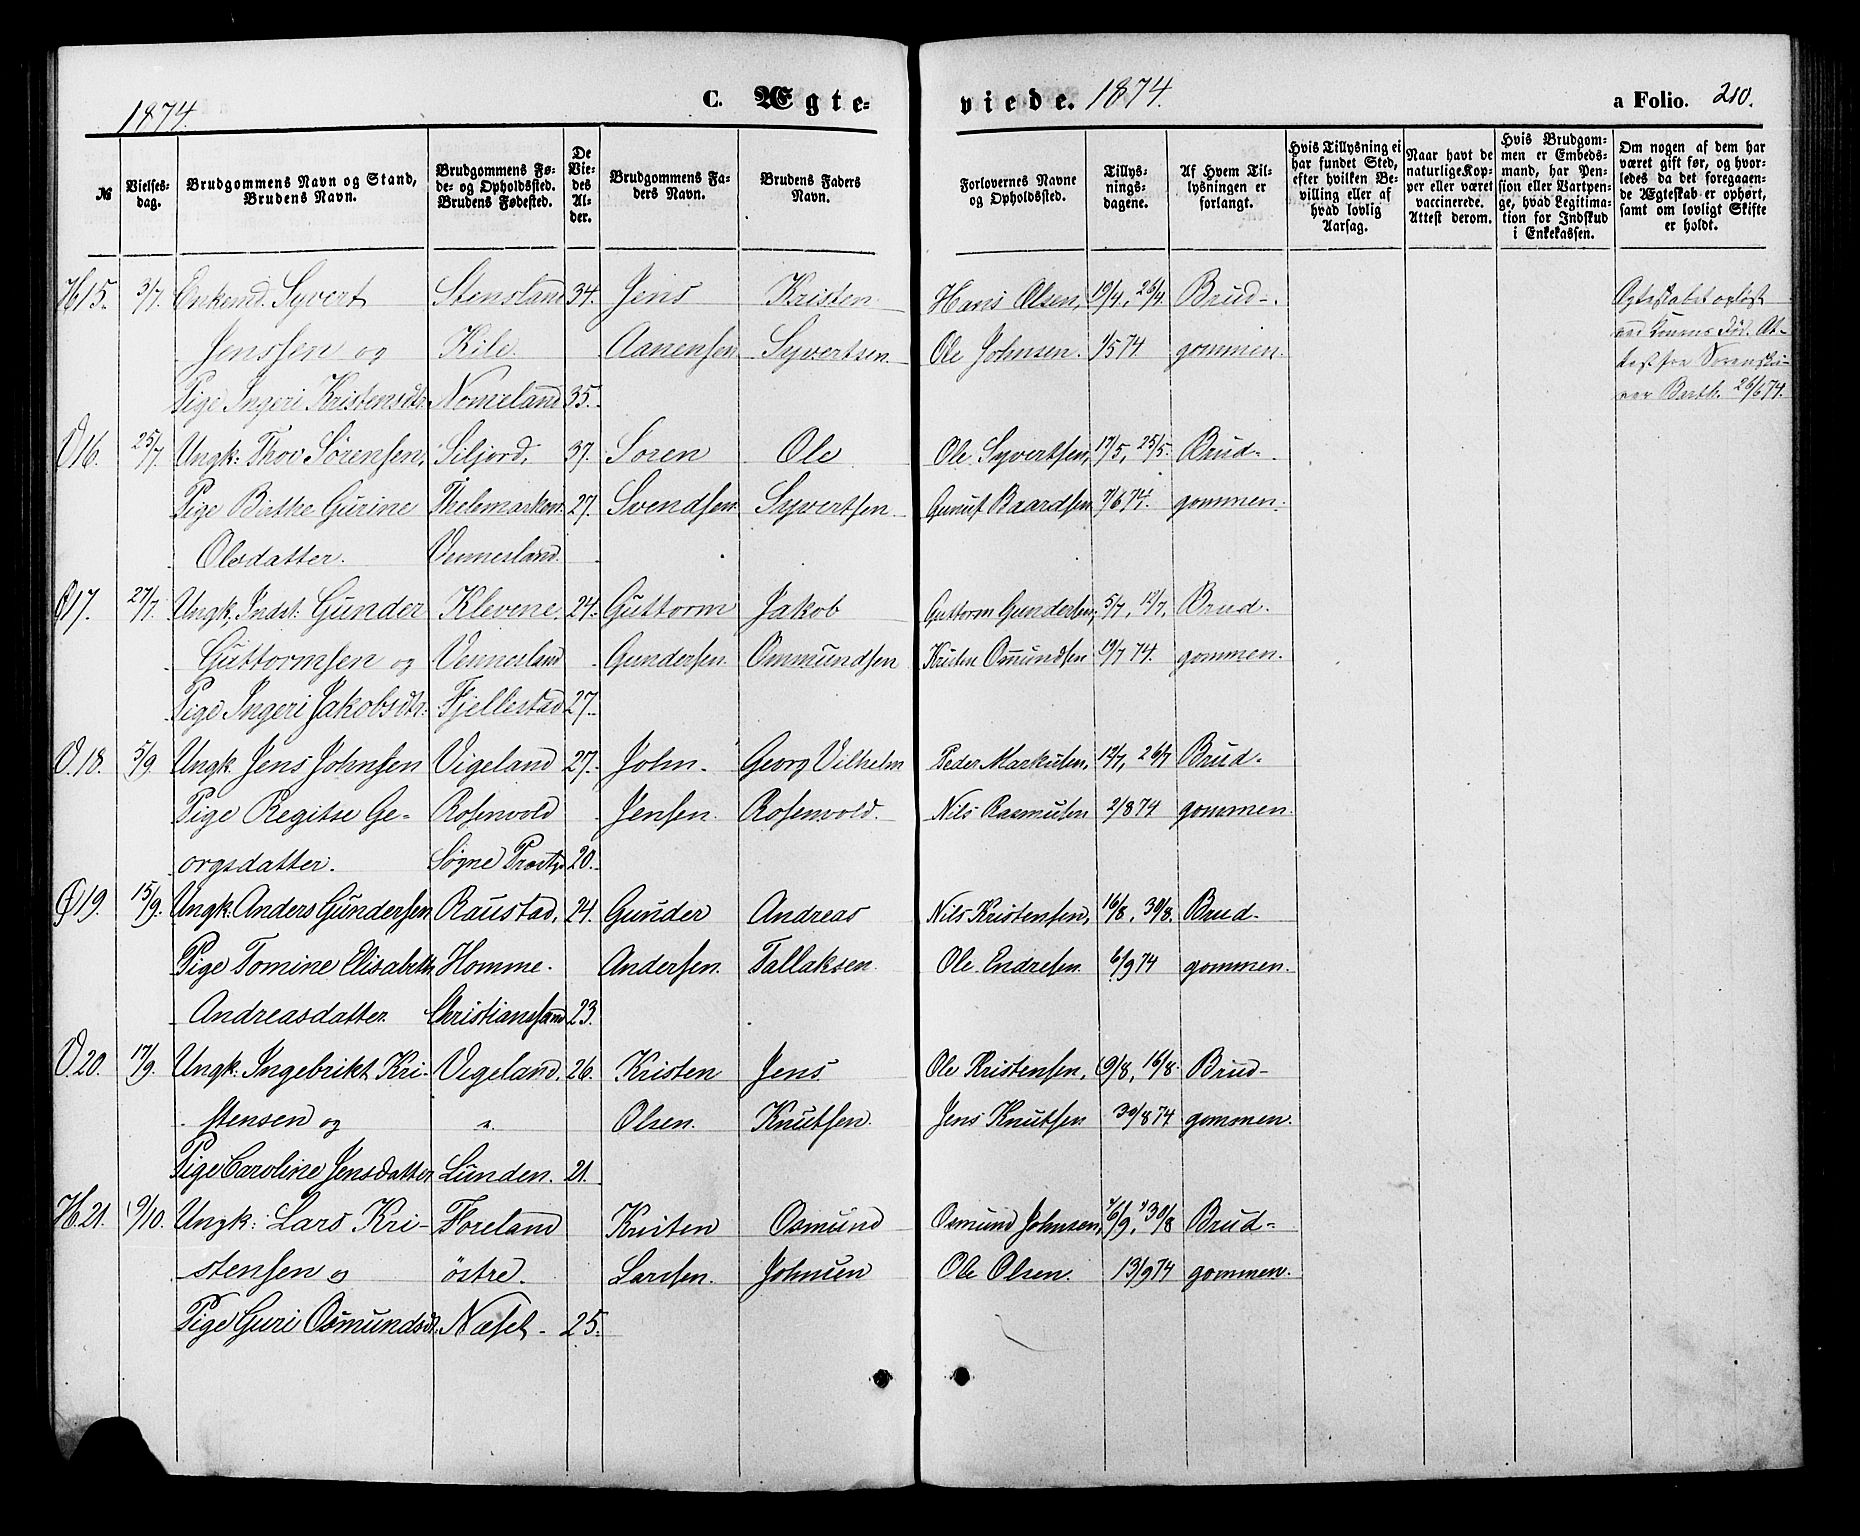 1874.
C. Ægte-
viede. 1874.
a Folio. 210.
№
Vielses-
dag.
Brudgommens Navn og Stand,
Brudens Navn.
Brudgommens Fø-
de- og Opholdssted.
Brudens Fødested.
De
Vie-
des
Al-
der.
Brudgommens Fa-
ders Navn.
Brudens Faders
Navn.
Forlovernes Navne
og Opholdssted.
Tillys-
nings-
dagene.
Af Hvem Til-
lysningen er
forlangt.
Hvis Tillysning ei
har fundet Sted,
efter hvilken Be-
villing eller af
hvad lovlig
Aarsag.
Naar havt de
naturlige Kop-
per eller været
vaccinerede.
Attest derom.
Hvis Brudgom-
men er Embeds-
mand, har Pen-
sion eller Vartpen-
ge, hvad Legitima-
tion for Indskud
i Enkekassen.
Om nogen af dem har
været gift før, og hvor-
ledes da det foregaaen-
de Ægteskab er ophørt,
samt om lovligt Skifte
er holdt.
H15. 3/7. Enkemd. Syvert Stensland 34. Jens Kristen Hans Olsen, 19/4, 26/4 Brud-
Jenssen og Kile. Aanensen Syvertsen. Ole Johnsen. 1/5 74 gommen.
Pige Ingeri Kristensdtr. Nomeland 35.
Egteskabet opløst
ved Konens Død. At-
test fra Sorenskri-
ver Barth. 26/6 74.
V16. 25/7. Ungk: Thov Sørensen, Siljord, 37. Soren Ole Ole Syvertsen, 17/5, 25/5. Brud-
Pige Birthe Gurine Thelemarken 27. Svendsen Syvertsen. Gunuf Baardsen 7/6 74. gommen.
Olsdatter. Vennesland.
Ø17. 27/7. Ungk. Indst: Gunder Klevene. 24. Guttorm Jakob Guttorm Gundersen, 5/7, 12/7, Brud-
Guttormsen og Vennesland Gundersen. Ommundsen Kristen Omundsen 19/7 74. gommen.
Pige Ingeri Jakobsdtr: Fjellestad 27.
V.18. 5/9. Ungk. Jens Johnsen Vigeland 27. John Georg Vilhelm Peder Markusen, 12/7, 26/7 Brud-
Pige Regitse Ge- Rosenvold Jensen. Rosenvold. Nils Rasmusen 2/8 74 gommen.
orgsdatter. Søgne Præstgd 20.
Ø19. 15/9. Ungk. Anders Gundersen Raustad, 24. Gunder Andreas Nils Kristensen, 16/8, 30/8. Brud-
Pige Tomine Elisabeth Homme. Andersen. Tallaksen. Ole Endresen. 6/9 74 gommen.
Andreasdatter. Christianssand 23.
V.20. 17/9. Ungk: Ingebrikt Kri- Vigeland. 26. Kristen Jens Ole Kristensen, 9/8, 16/8. Brud-
stensen og " Olsen. Knutsen. Jens Knutsen 30/8 74 gommen.
Pige Caroline Jensdatter Lunden. 21.
H.21. 9/10. Ungk: Lars Kri- Foreland Kristen Osmund Osmund Johnsen, 6/9, 30/8 Brud-
stensen og østre. Larssen. Johnsen Ole Olsen. 13/9 74 gommen.
Pige Guri Osmundsdt. Næset 25.